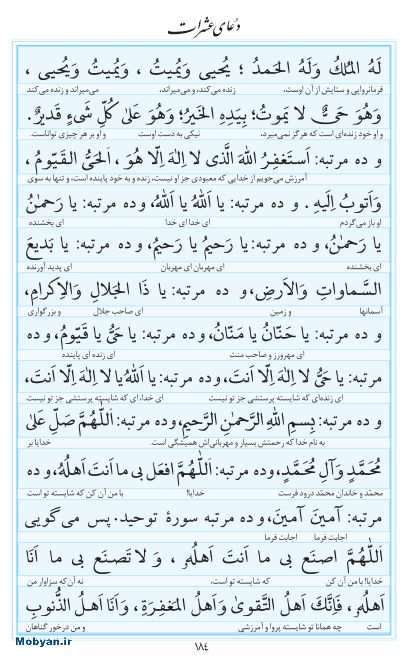 دعای عشرات
لَهُ المُلكُ وَلَهُ الحَمدُ ؛ یُحیی وَیُمیتُ ، وَیُمیتُ وَیُحیی ،
فرمانروایی و ستایش از آن اوست، زنده می‌کند، و می‌میراند، می‌میراند و زنده می‌کند
وَهُوَ حَیٌّ لا یَموتُ؛ بِیَدِهِ الخَیرُ؛ وَهُوَ عَلیٰ کُلِّ شَیءٍ قَدیرٌ.
و او خود زنده‌ای است که هرگز نمی‌میرد، نیکی به دست اوست و او بر هر چیزی تواناست.
و ده مرتبه: اَستَغفِرُ اللّٰهَ الَّذی لا اِلٰهَ اِلّا هُوَ ، الحَیُّ القَیّومُ ،
آمرزش می‌جویم از خدایی که معبودی جز او نیست، زنده و به خود پاینده است، و تنها به سوی
وَاَتوبُ اِلَیهِ . و ده مرتبه: یا اَللّٰهُ یا اَللّٰهُ، و ده مرتبه: یا رَحمٰنُ
او باز می‌گردم ای خدا ای خدا ای بخشنده
یا رَحمٰنُ، و ده مرتبه: یا رَحیمُ یا رَحیمُ، و ده مرتبه: یا بَدیعَ
ای بخشنده ای مهربان ای مهربان ای پدید آورنده
السَّماواتِ وَالاَرضِ، و ده مرتبه: یا ذَا الجَلالِ وَالاِکرامِ،
آسمانها و زمین ای صاحب جلال و بزرگواری
و ده مرتبه: یا حَنّانُ یا مَنّانُ، و ده مرتبه: یا حَیُّ یا قَیّومُ، و ده
ای مهرورز و صاحب منت ای زنده ای پاینده
مرتبه: یا حَیُّ لا اِلٰهَ اِلّا اَنتَ، و ده مرتبه: یا اَللّٰهُ یا لا اِلٰهَ اِلّا اَنتَ،
ای زنده‌ای که شایسته پرستشی جز تو نیست. ای خدا، ای که شایسته پرستشی جز تو نیست
و ده مرتبه: بِسمِ اللّٰهِ الرَّحمٰنِ الرَّحیمِ، و ده مرتبه: اَللّٰهُمَّ صَلِّ عَلیٰ
به نام خدا که رحمتش بسیار و مهربانی‌اش همیشگی است. خدایا بر
مُحَمَّدٍ وَآلِ مُحَمَّدٍ، و ده مرتبه: اَللّٰهُمَّ افعَل بی ما اَنتَ اَهلُهُ، و ده
محمّد و خاندان محمّد درود فرست خدایا! با من آن کن که شایسته تو است
مرتبه: آمینَ آمینَ، و ده مرتبه سورهٔ توحید. پس می‌گویی
اجابت فرما اجابت فرما
اَللّٰهُمَّ اصنَع بی ما اَنتَ اَهلُهُ ، وَ لا تَصنَع بی ما اَنَا
خدایا! با من آن کن که شایسته تو است، نه آن که سزاوار من
اَهلُهُ، فَاِنَّکَ اَهلُ التَّقویٰ وَاَهلُ المَغفِرَةِ، وَاَنَا اَهلُ الذُّنوبِ
است چه همانا تو شایسته پروا و آمرزشی و من درخور گناهان
۱۸۴
Mobyan.ir